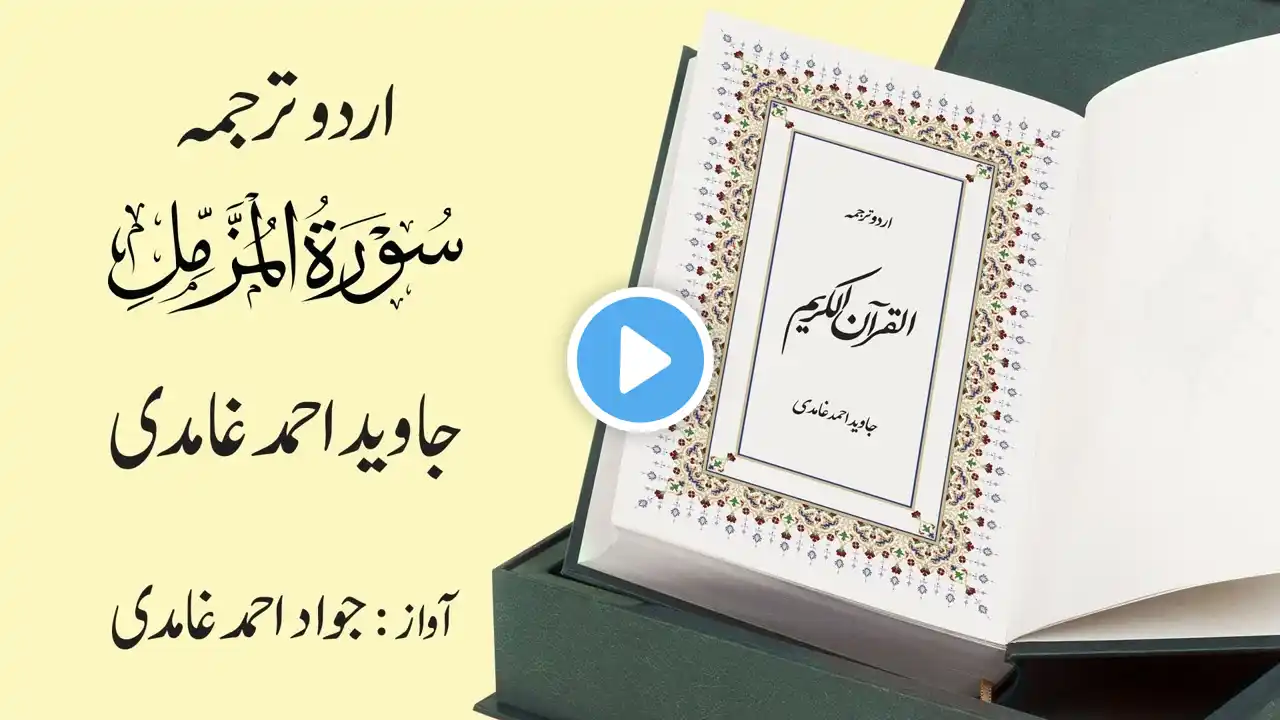 اردو ترجمہ
سُوْرَةُ الْمُزَّمِّلِ
جاوید احمد غامدی
آواز : جواد احمد غامدی
اردو ترجمہ
القرآن الکریم
جاوید احمد غامدی